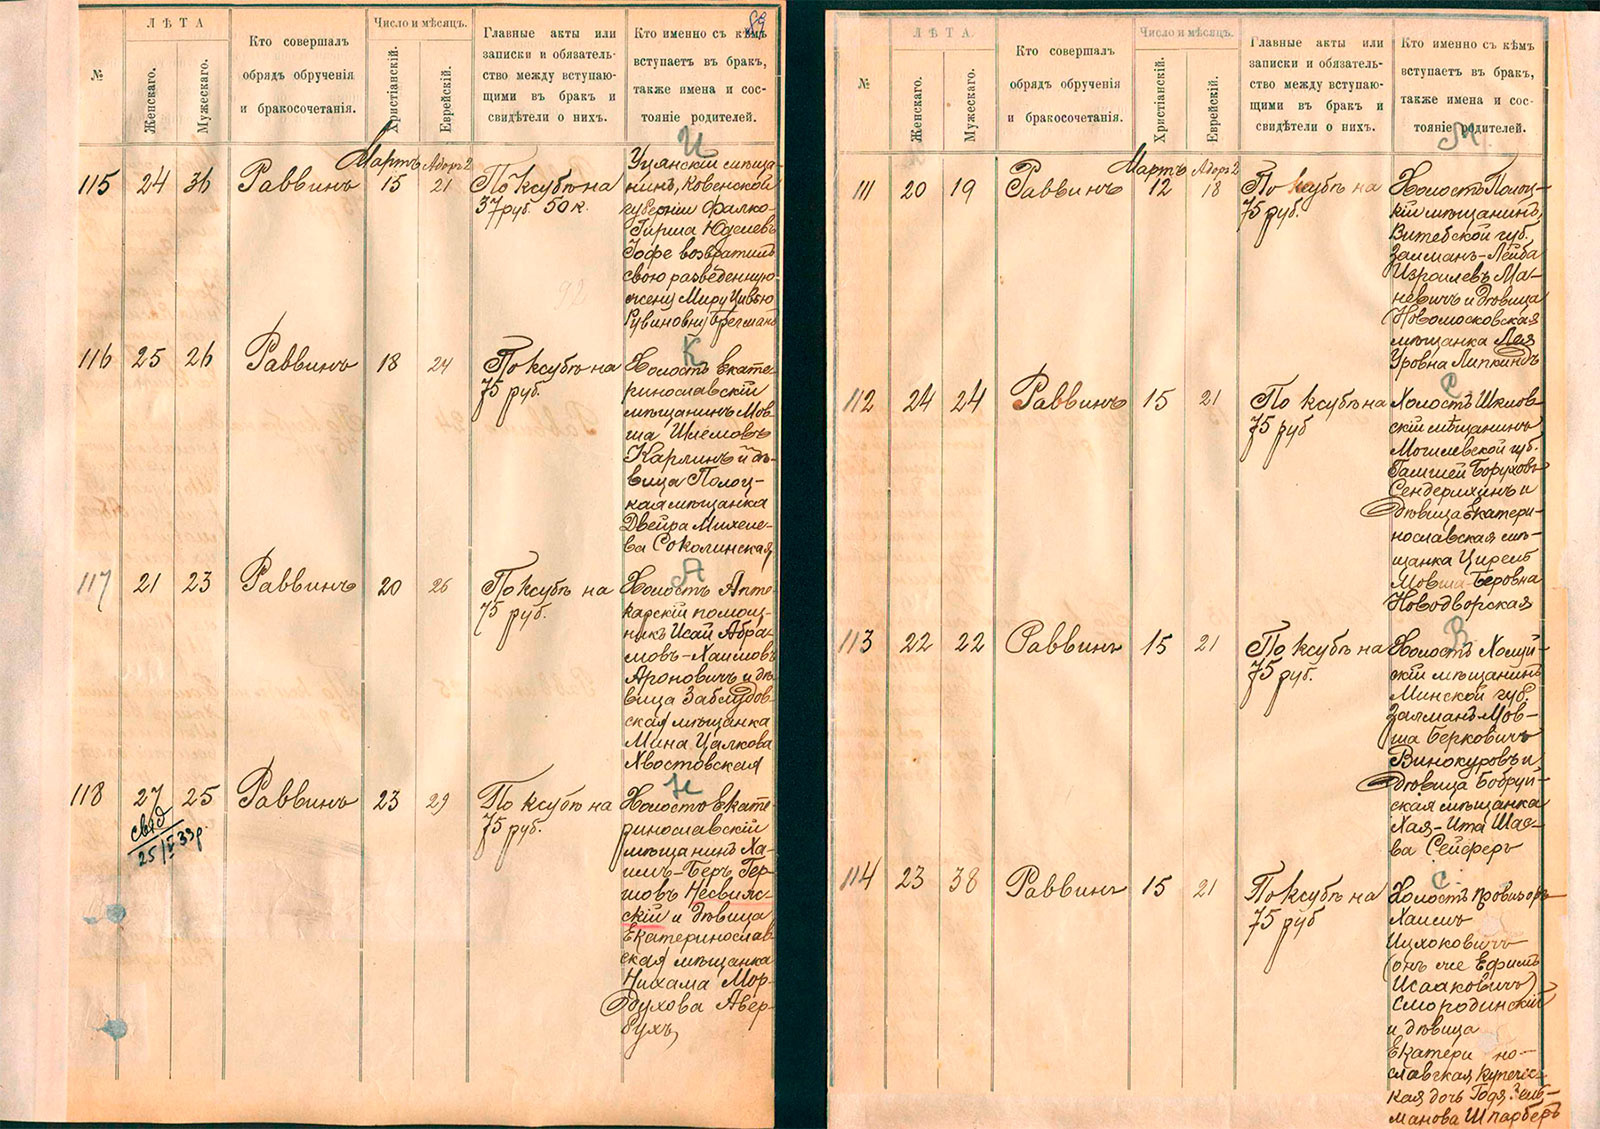 89
№
ЛѢТА
Женскаго.
Мужескаго.
Кто совершалъ
обрядъ обрученія
и бракосочетанія.
Число и мѣсяцъ.
Христіанскій.
Еврейскій.
Главные акты или
записки и обязатель-
ство между вступаю-
щими въ бракъ и
свидѣтели о нихъ.
Кто именно съ кѣмъ
вступаетъ въ бракъ,
также имена и сос-
тояніе родителей.
И
Мартъ Адоръ 2
115 24 36 Раввинъ 15 21 По ксубѣ на
37 руб. 50 к.
Уцянскій мѣща-
нинъ, Ковенской
губерніи Фалко-
Гирша Юделевъ
Іофе возвратилъ
свою разведенную
жену Миру Цивью
Рувиновну Брегманъ
92
К
116 25 26 Раввинъ 18 24 По ксубѣ на
75 руб.
Холостъ Екате-
ринославскій
мѣщанинъ Мов-
ша Шлемовъ
Карлинъ и дѣ-
вица Полоц-
кая мѣщанка
Двейра Михеле-
ва Соколинская
А
117 21 23 Раввинъ 20 26 По ксубѣ на
75 руб.
Холостъ Апте-
карскій помощ-
никъ Исай Абра-
мовъ-Хаимовъ
Ароновичъ и дѣ-
вица Заблудов-
ская мѣщанка
Мина Цалкова
Хвостовская
Н
118 27 25 Раввинъ 23 29 По ксубѣ на
75 руб.
свид
25/V 33 г.
Холостъ Екате-
ринославскій
мѣщанинъ Ха-
имъ-Беръ Гер-
шовъ Несвиж-
скій и дѣвица
Екатеринослав-
ская мѣщанка
Нихама Мор-
духова Авер-
бухъ
№
ЛѢТА
Женскаго.
Мужескаго.
Кто совершалъ
обрядъ обрученія
и бракосочетанія.
Число и мѣсяцъ.
Христіанскій.
Еврейскій.
Главные акты или
записки и обязатель-
ство между вступаю-
щими въ бракъ и
свидѣтели о нихъ.
Кто именно съ кѣмъ
вступаетъ въ бракъ,
также имена и сос-
тояніе родителей.
М
Мартъ Адоръ 2
111 20 19 Раввинъ 12 18 По ксубѣ на
75 руб.
Холостъ Полоц-
кій мѣщанинъ,
Витебской губ.
Залманъ-Лейба
Израилевъ Ма-
невичъ и дѣвица
Новомосковская
мѣщанка Лея
Уровна Липкиндъ
С
112 24 24 Раввинъ 15 21 По ксубѣ на
75 руб
Холостъ Шклов-
скій мѣщанинъ
Могилевской губ.
Боруховъ
Сендерихинъ и
дѣвица Екатери-
нославская мѣ-
щанка Цирель
Мовша-Беровна
Новодворская
В
113 22 22 Раввинъ 15 21 По ксубѣ на
75 руб.
Холостъ Холуй-
скій мѣщанинъ
Минской губ.
Залманъ Мов-
ша Берковичъ
Винокуровъ и
дѣвица Бобруй-
ская мѣщанка
Хая-Ита Шае-
ва Сейферъ
С
114 23 38 Раввинъ 15 21 По ксубѣ на
75 руб
Холостъ провизоръ
Хаимъ
Ицхоковичъ
(онъ же Ефимъ
Исааковичъ)
Смородинскій
и дѣвица
Екатерино-
славская купечес-
кая дочь Годя Зель-
манова Шпарберъ